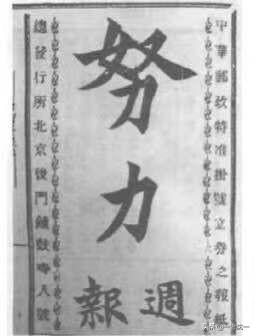 中華郵政特准掛號立券之報紙
努力
週報
總發行所北京後門鐘鼓寺八號